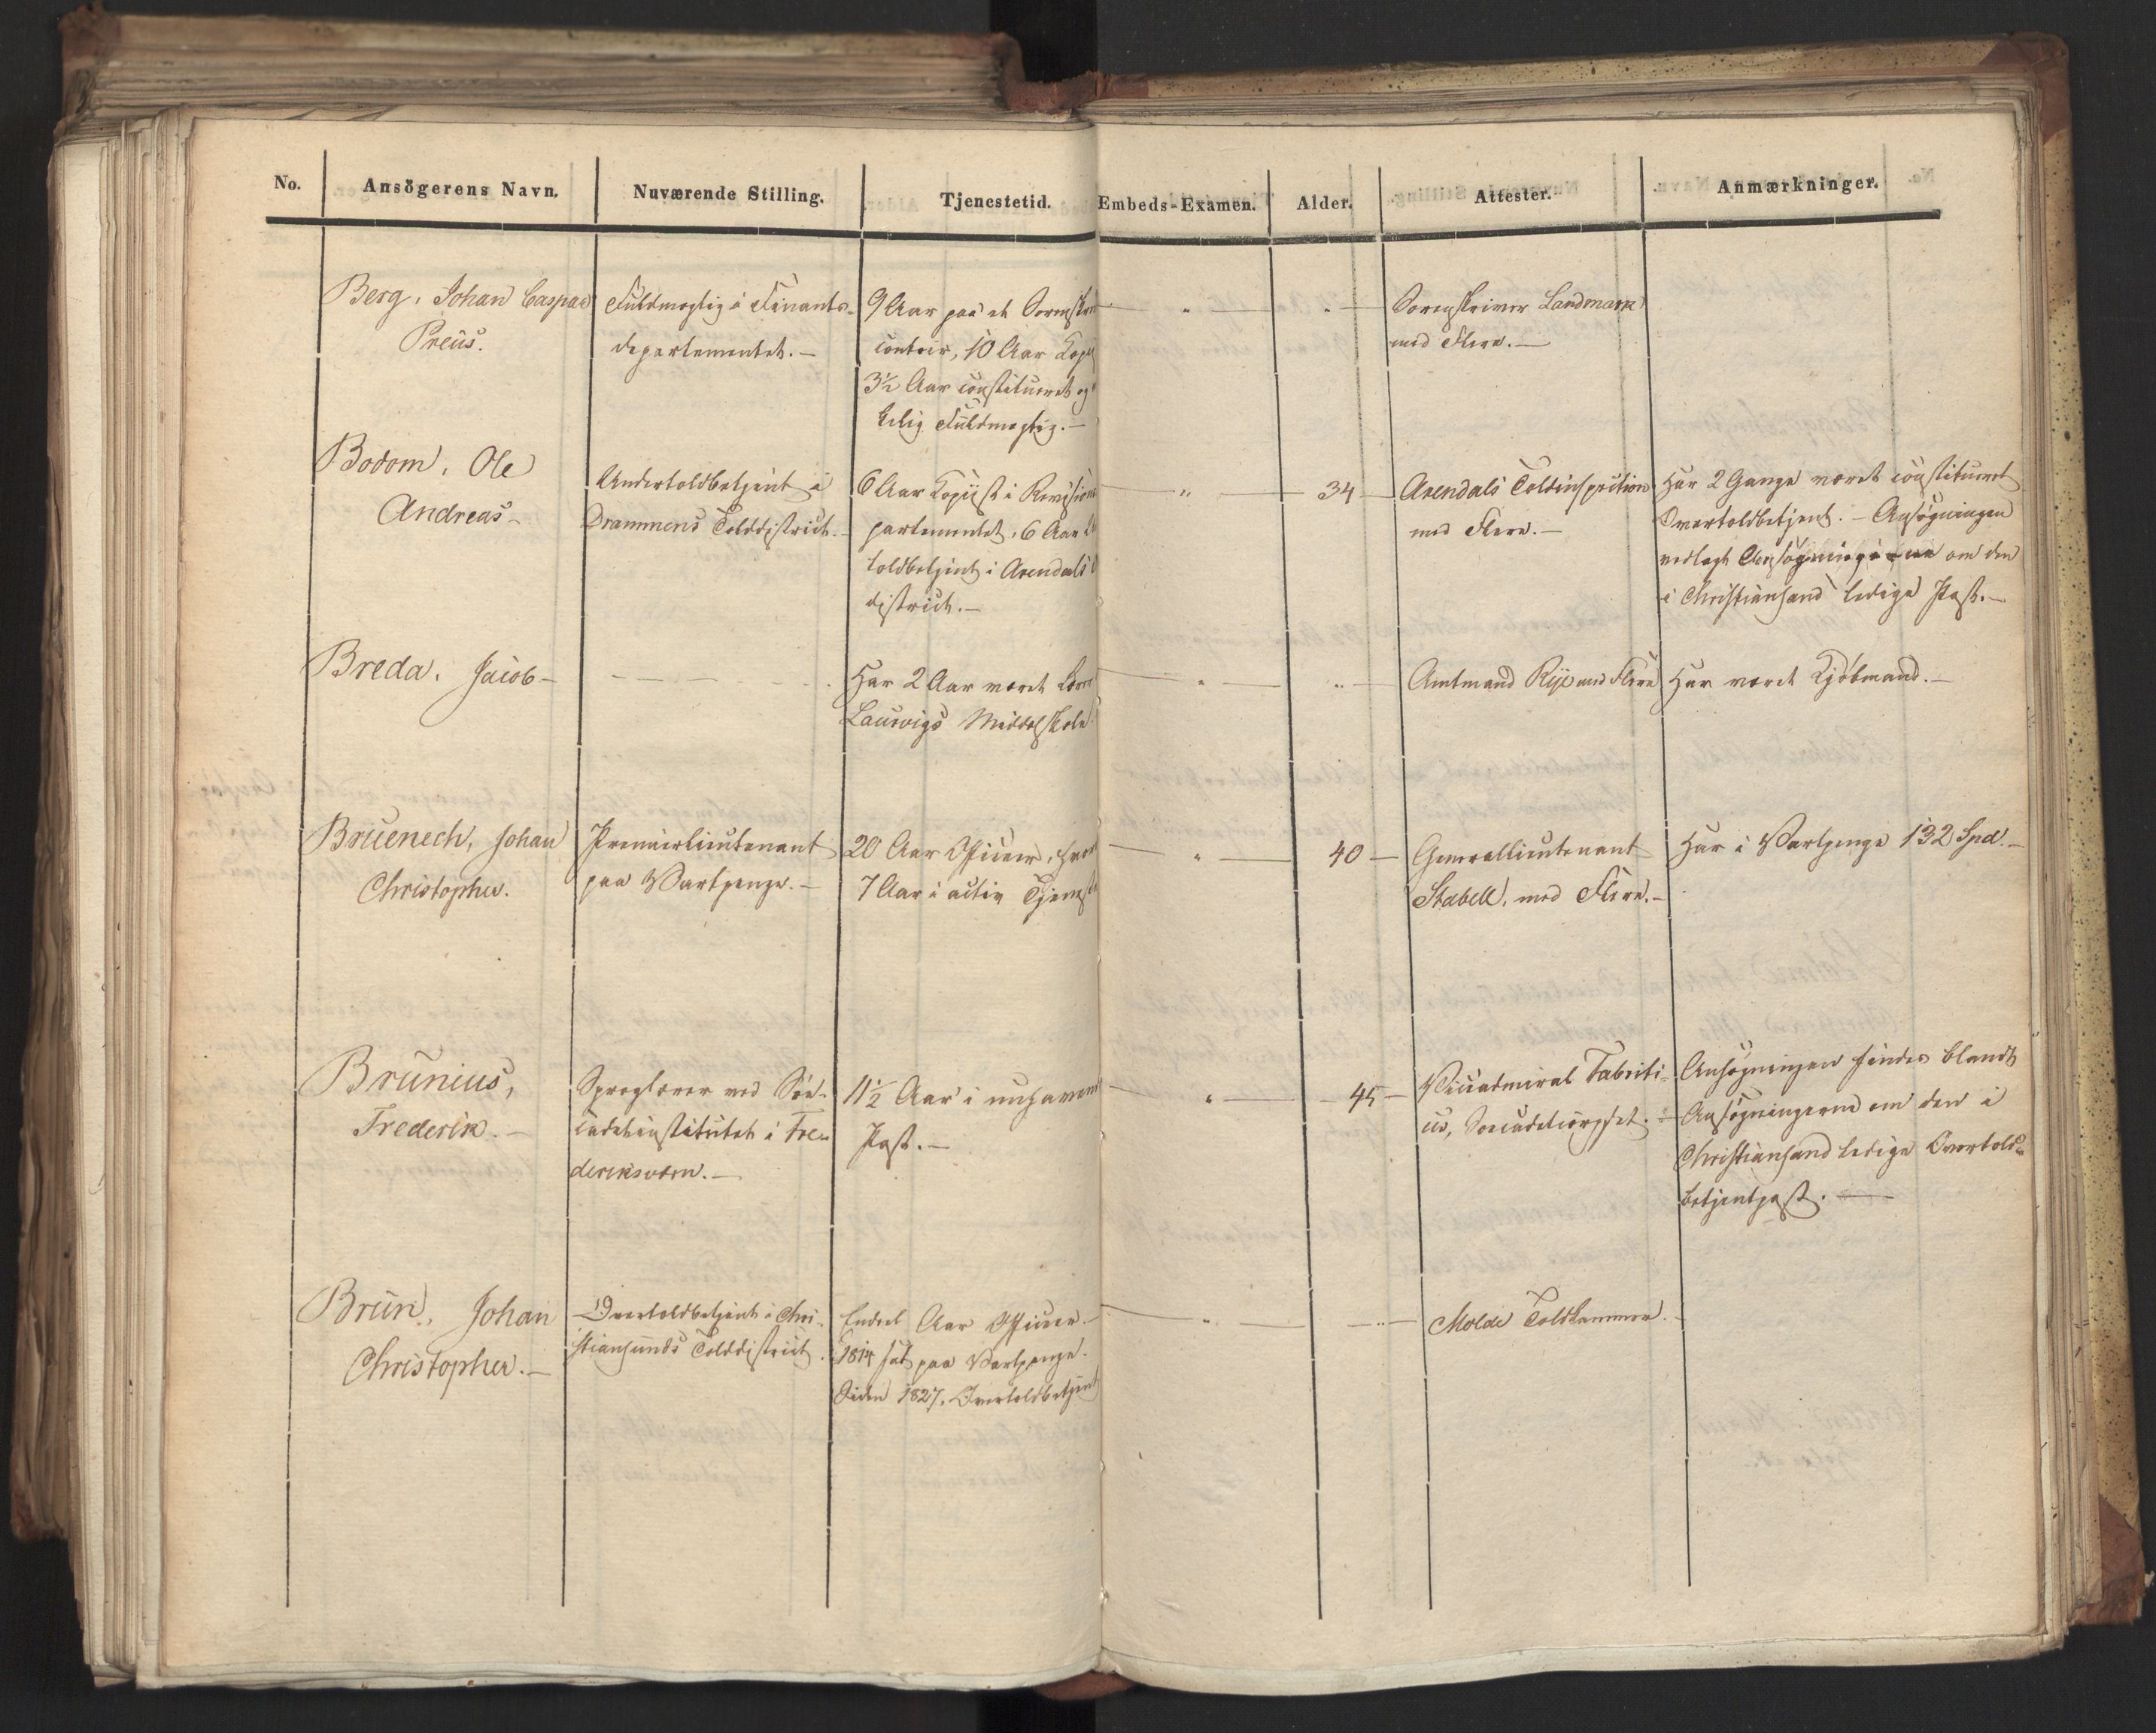 No.
Ansögerens Navn.
Nuværende Stilling.
Tjenestetid.
Embeds-Examen.
Alder.
Attester.
Anmærkninger.
Berg, Johan Caspar
Preus.
Fuldmægtig i Finants-
departementet. —
9 Aar paa et
contoir, 10 Aar
3½ Aar constitueret og
Fuldmægtig. —
"
"
Sorenskriver Landmark
med Flere. —
Bodom, Ole
Andreas —
Undertoldbetjent i
Drammens Tolddistrict. —
6 Aar Copiist i Revisions
partementet, 6 Aar
toldbetjent i Arendals
district. —
"
34 —
Arendals Toldinspection
med Flere. —
Har 2 Gange været constitueret
Overtoldbetjent. — Ansøgningen
vedlagt Ansøgningerne om den
i Christiansand ledige Post. —
Breda, Jacob —
Har 2 Aar været
Laurvigs Middelskole
"
"
Amtmand Rye med Flere
Har været Kjöbmand. —
Bruenech, Johan
Christopher.
Premierlieutenant
paa Vartpenge. —
20 Aar Officier,
7 Aar i activ Tjeneste
"
40 —
Generallieutenant
Stabell, med Flere. —
Har i Vartpenge 132 Spd. —
Brunius,
Frederik. —
Sproglærer ved Söe-
cadetinstitutet i Fre-
deriksværn. —
11½ Aar i
Post. —
"
45 —
Viceadmiral Fabriti-
us, Søecadetcorpset. —
Ansögningen findes blandt
Ansögningerne om den i
Christiansand ledige Overtold-
betjentpost. —
Brun, Johan
Christopher. —
Overtoldbetjent i Chri-
stiansunds Tolddistrict.
Endeel Aar Officier. —
1814 sat paa Vartpenge.
Siden 1827, Overtoldbetjent
"
"
Molde Toldkammer. —